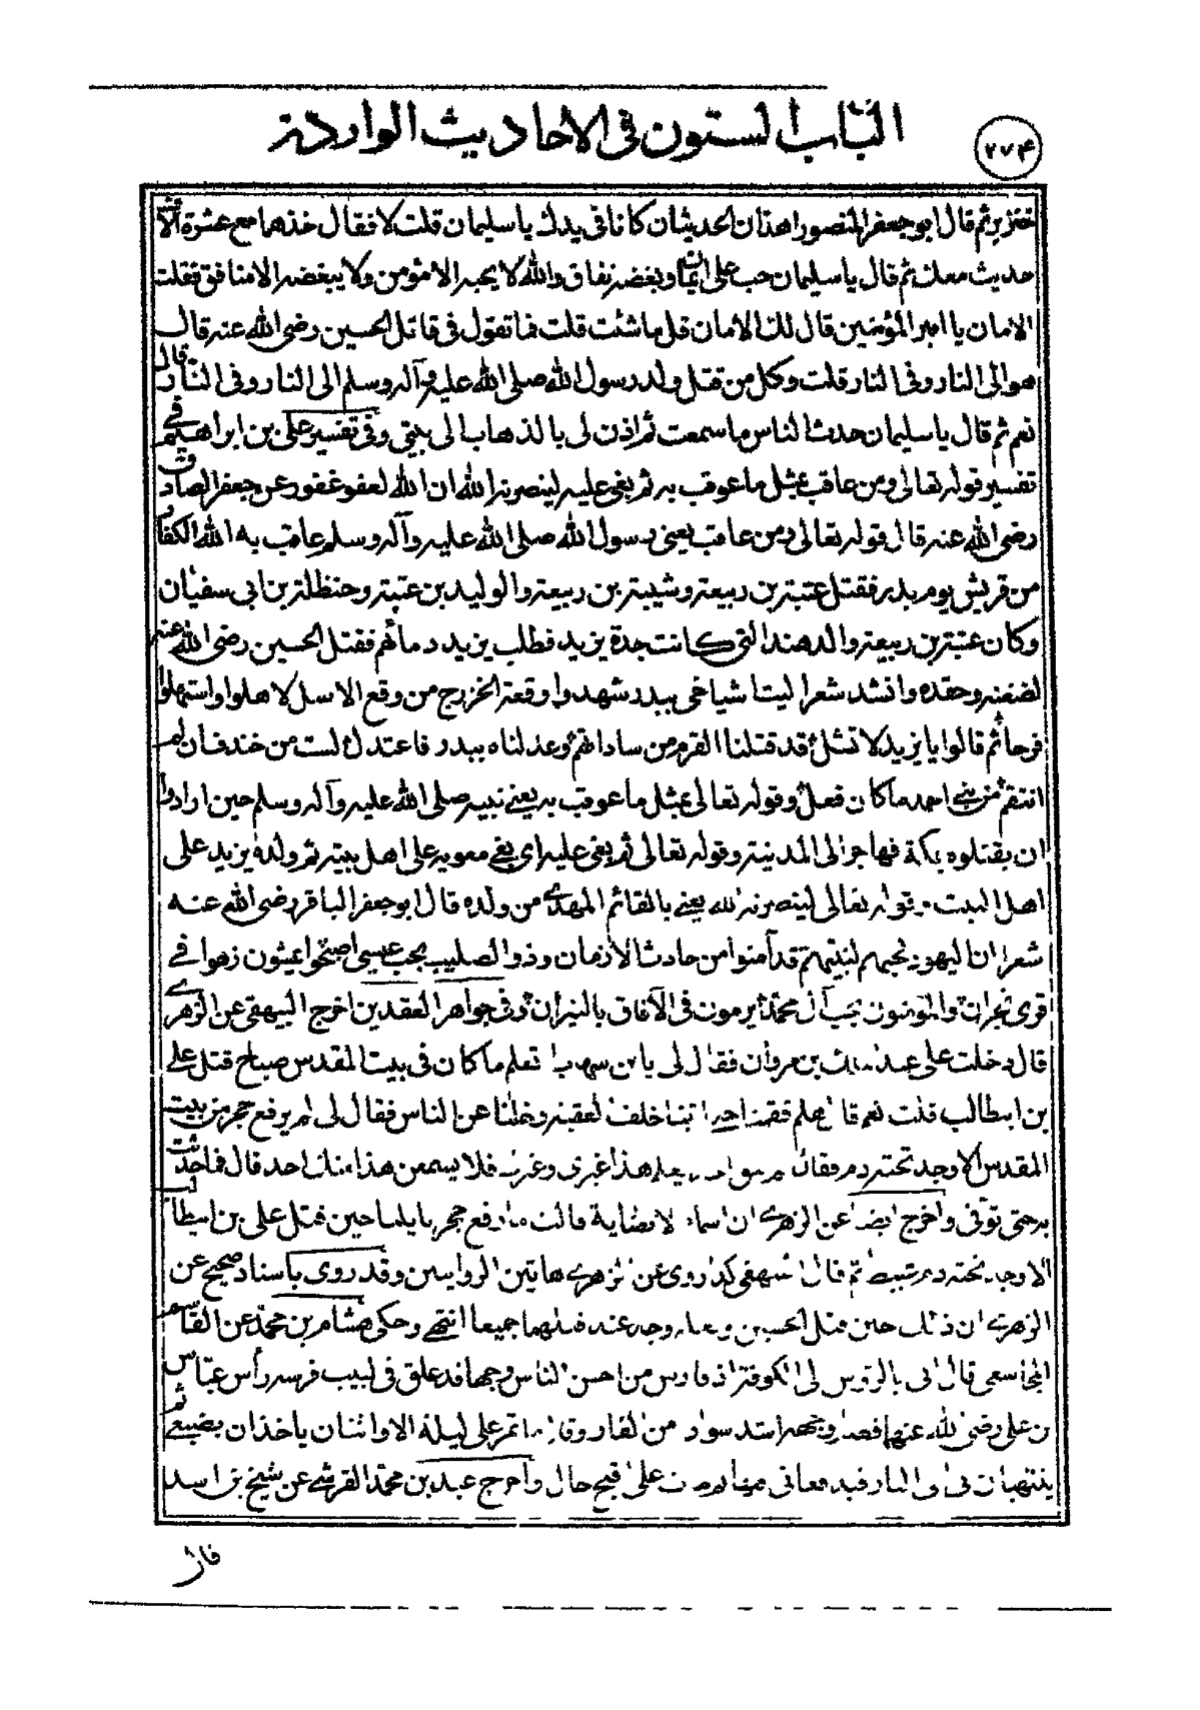 الباب الستون فى الاحاديث الواردة
٢٧۴
خنزير ثم قال ابو جعفر المنصور اهذان الحديثان كانا فى يدك يا سليمان قلت لا فقال خذهما مع عشرة آلاف
حديث معك ثم قال يا سليمان حب على ايمان وبغضه نفاق والله لا يحبه الا مؤمن ولا يبغضه الا منافق فقلت
الامان يا امير المؤمنين قال لك الامان قل ما شئت قلت فما تقول فى قاتل الحسين رضى الله عنه قال
هو الى النار وفى النار قلت وكل من قتل ولد رسول الله صلى الله عليه وآله وسلم الى النار وفى النار قال
نعم ثم قال يا سليمان حدث الناس ما سمعت ثم اذن لى بالذهاب الى بيتى وفى تفسير على بن ابراهيم فى
تفسير قوله تعالى ومن عاقب بمثل ما عوقب به ثم بغى عليه لينصرنه الله ان الله لعفو غفور عن جعفر الصادق
رضى الله عنه قال قوله تعالى ومن عاقب يعنى رسول الله صلى الله عليه وآله وسلم عاقب به الله الكفار
من قريش يوم بدر فقتل عتبة بن ربيعة وشيبة بن ربيعة والوليد بن عتبة وحنظلة بن ابى سفيان
وكان عتبة بن ربيعة والد هند التى كانت جدة يزيد فطلب يزيد دمائهم فقتل الحسين رضى الله عنه
لضغنه وحقده وانشد شعرا ليت اشياخى ببدر شهدوا وقعة الخزرج من وقع الاسل لاهلوا واستهلوا
فرحا ثم قالوا يا يزيد لا تشل قد قتلنا القرم من ساداتهم وعدلناه ببدر فاعتدل لست من خندف ان لم
انتقم من بنى احمد ما كان فعل وقوله تعالى بمثل ما عوقب به يعنى نبيه صلى الله عليه وآله وسلم حين ارادوا
ان يقتلوه بمكة فهاجر الى المدينة وقوله تعالى ثم بغى عليه اى بغى معوية على اهل بيته ثم ولده يزيد على
اهل البيت وقوله تعالى لينصرنه الله يعنى بالقائم المهدى من ولده قال ابو جعفر الباقر رضى الله عنه
شعرا ان اليهود بحبهم لنبيهم قد آمنوا من حادث الازمان وذو الصليب بحب عيسى اصبحوا يمشون زهوا فى
قرى نجران والمؤمنون بحب آل محمد يرمون فى الآفاق بالنيران وفى جواهر العقدين اخرج البيهقى عن الزهرى
قال دخلت على عبد الملك بن مروان فقال لى يا ابن شهاب اتعلم ما كان فى بيت المقدس صباح قتل على
بن ابيطالب قلت نعم قال هلم فقمنا خلف القبة وخلنا عن الناس فقال لى لم يرفع حجر من بيت
المقدس الا وجد تحته دم وقال يعلم هذا غيرى وغيرك فلا يسمعن هذا منك احد قال فما حدثت
به حتى توفى واخرج ايضا عن الزهرى ان اسماء الانصارية قالت ما رفع حجر بايليا حين قتل على بن ابيطالب
الا وجد تحته دم عبيط ثم قال البيهقى كذا روى عن الزهرى هاتين الروايتين وقد روى باسناد صحيح عن
الزهرى ان ذلك حين قتل الحسين ولعله وجد عند قتلهما جميعا انتهى وحكى هشام بن محمد عن القاسم
المجاشعى قال اتى بالرؤس الى الكوفة اذ فارس من احسن الناس وجها قد علق فى لبيب فرسه رأس عباس
بن على رضى الله عنهما فصار وجهه اشد سواد من القار وقال ما تمر على ليلة الا واثنان ياخذان بضبعى
ينتهيان بى الى النار على قبيح حال واخرج عبد بن محمد القرشى عن شيخ بن اسد
قال